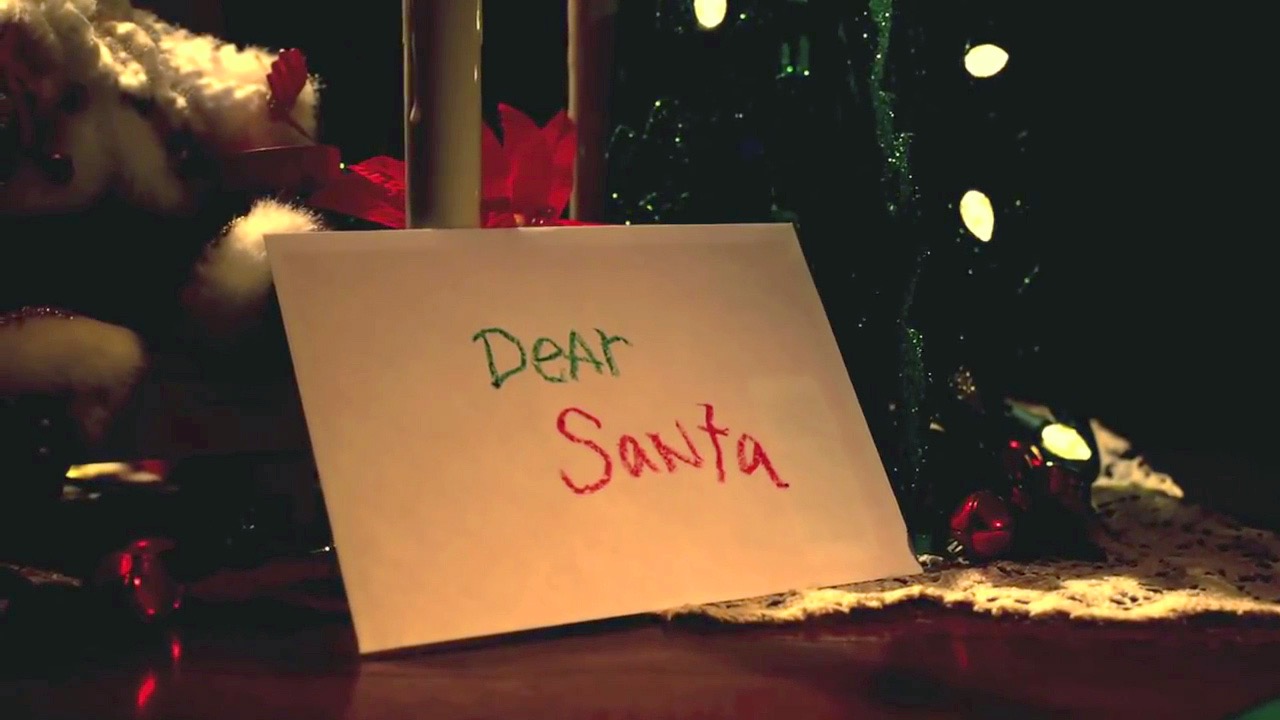 DeAr
SaNta